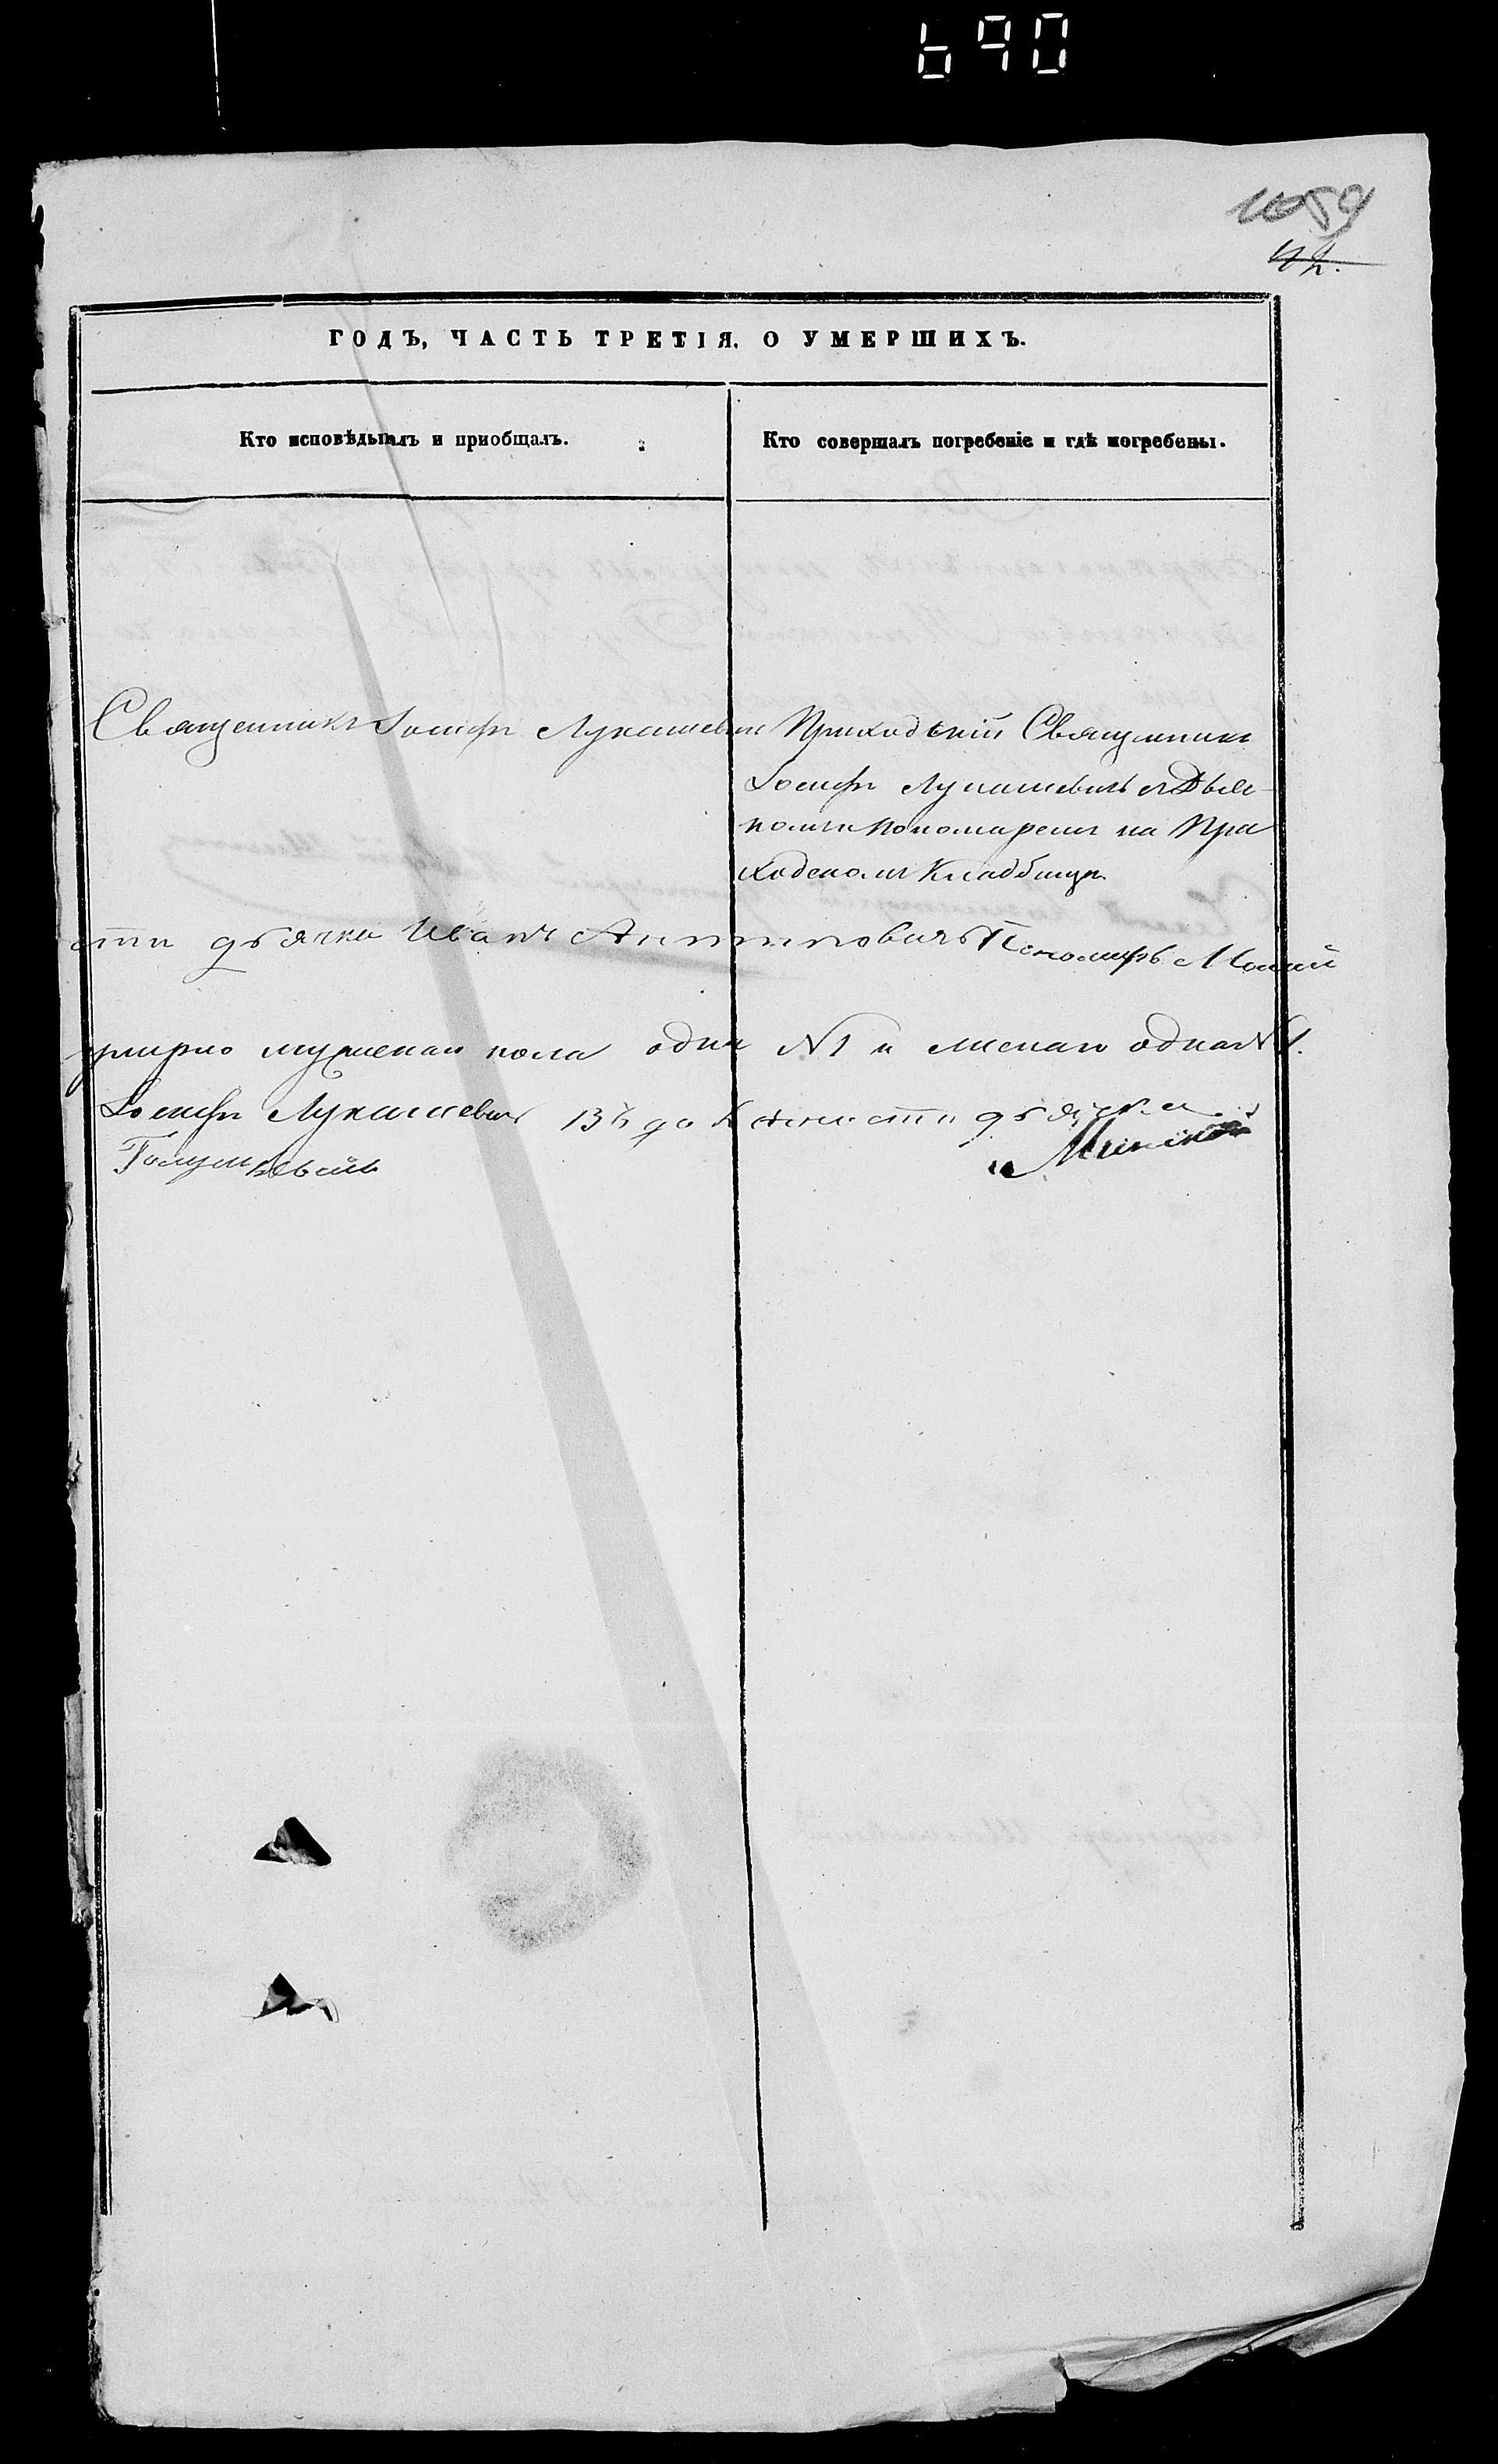 690
1059
ГОДЪ, ЧАСТЬ ТРЕТІЯ. О УМЕРШИХЪ.
Кто исповѣдывалъ и пріобщалъ.
Кто совершалъ погребеніе и гдѣ погребены.
Священникъ Іосифъ Лукашевичъ
Приходскій Священникъ
Іосифъ Лукашевичъ
пономаремъ на При
ходскомъ Кладбищѣ
сти дьячка Иванъ Антиповичъ Пономарь
умерло мужеска пола одинъ №1 и женска одна №1.
Іосифъ Лукашевичъ Въ должности дьячка